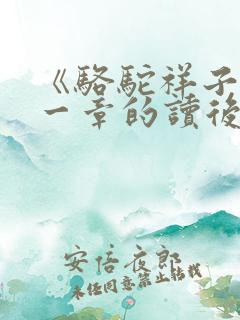 《駱駝祥子
一章的讀後
安倍夜郎
未經同意禁止轉載